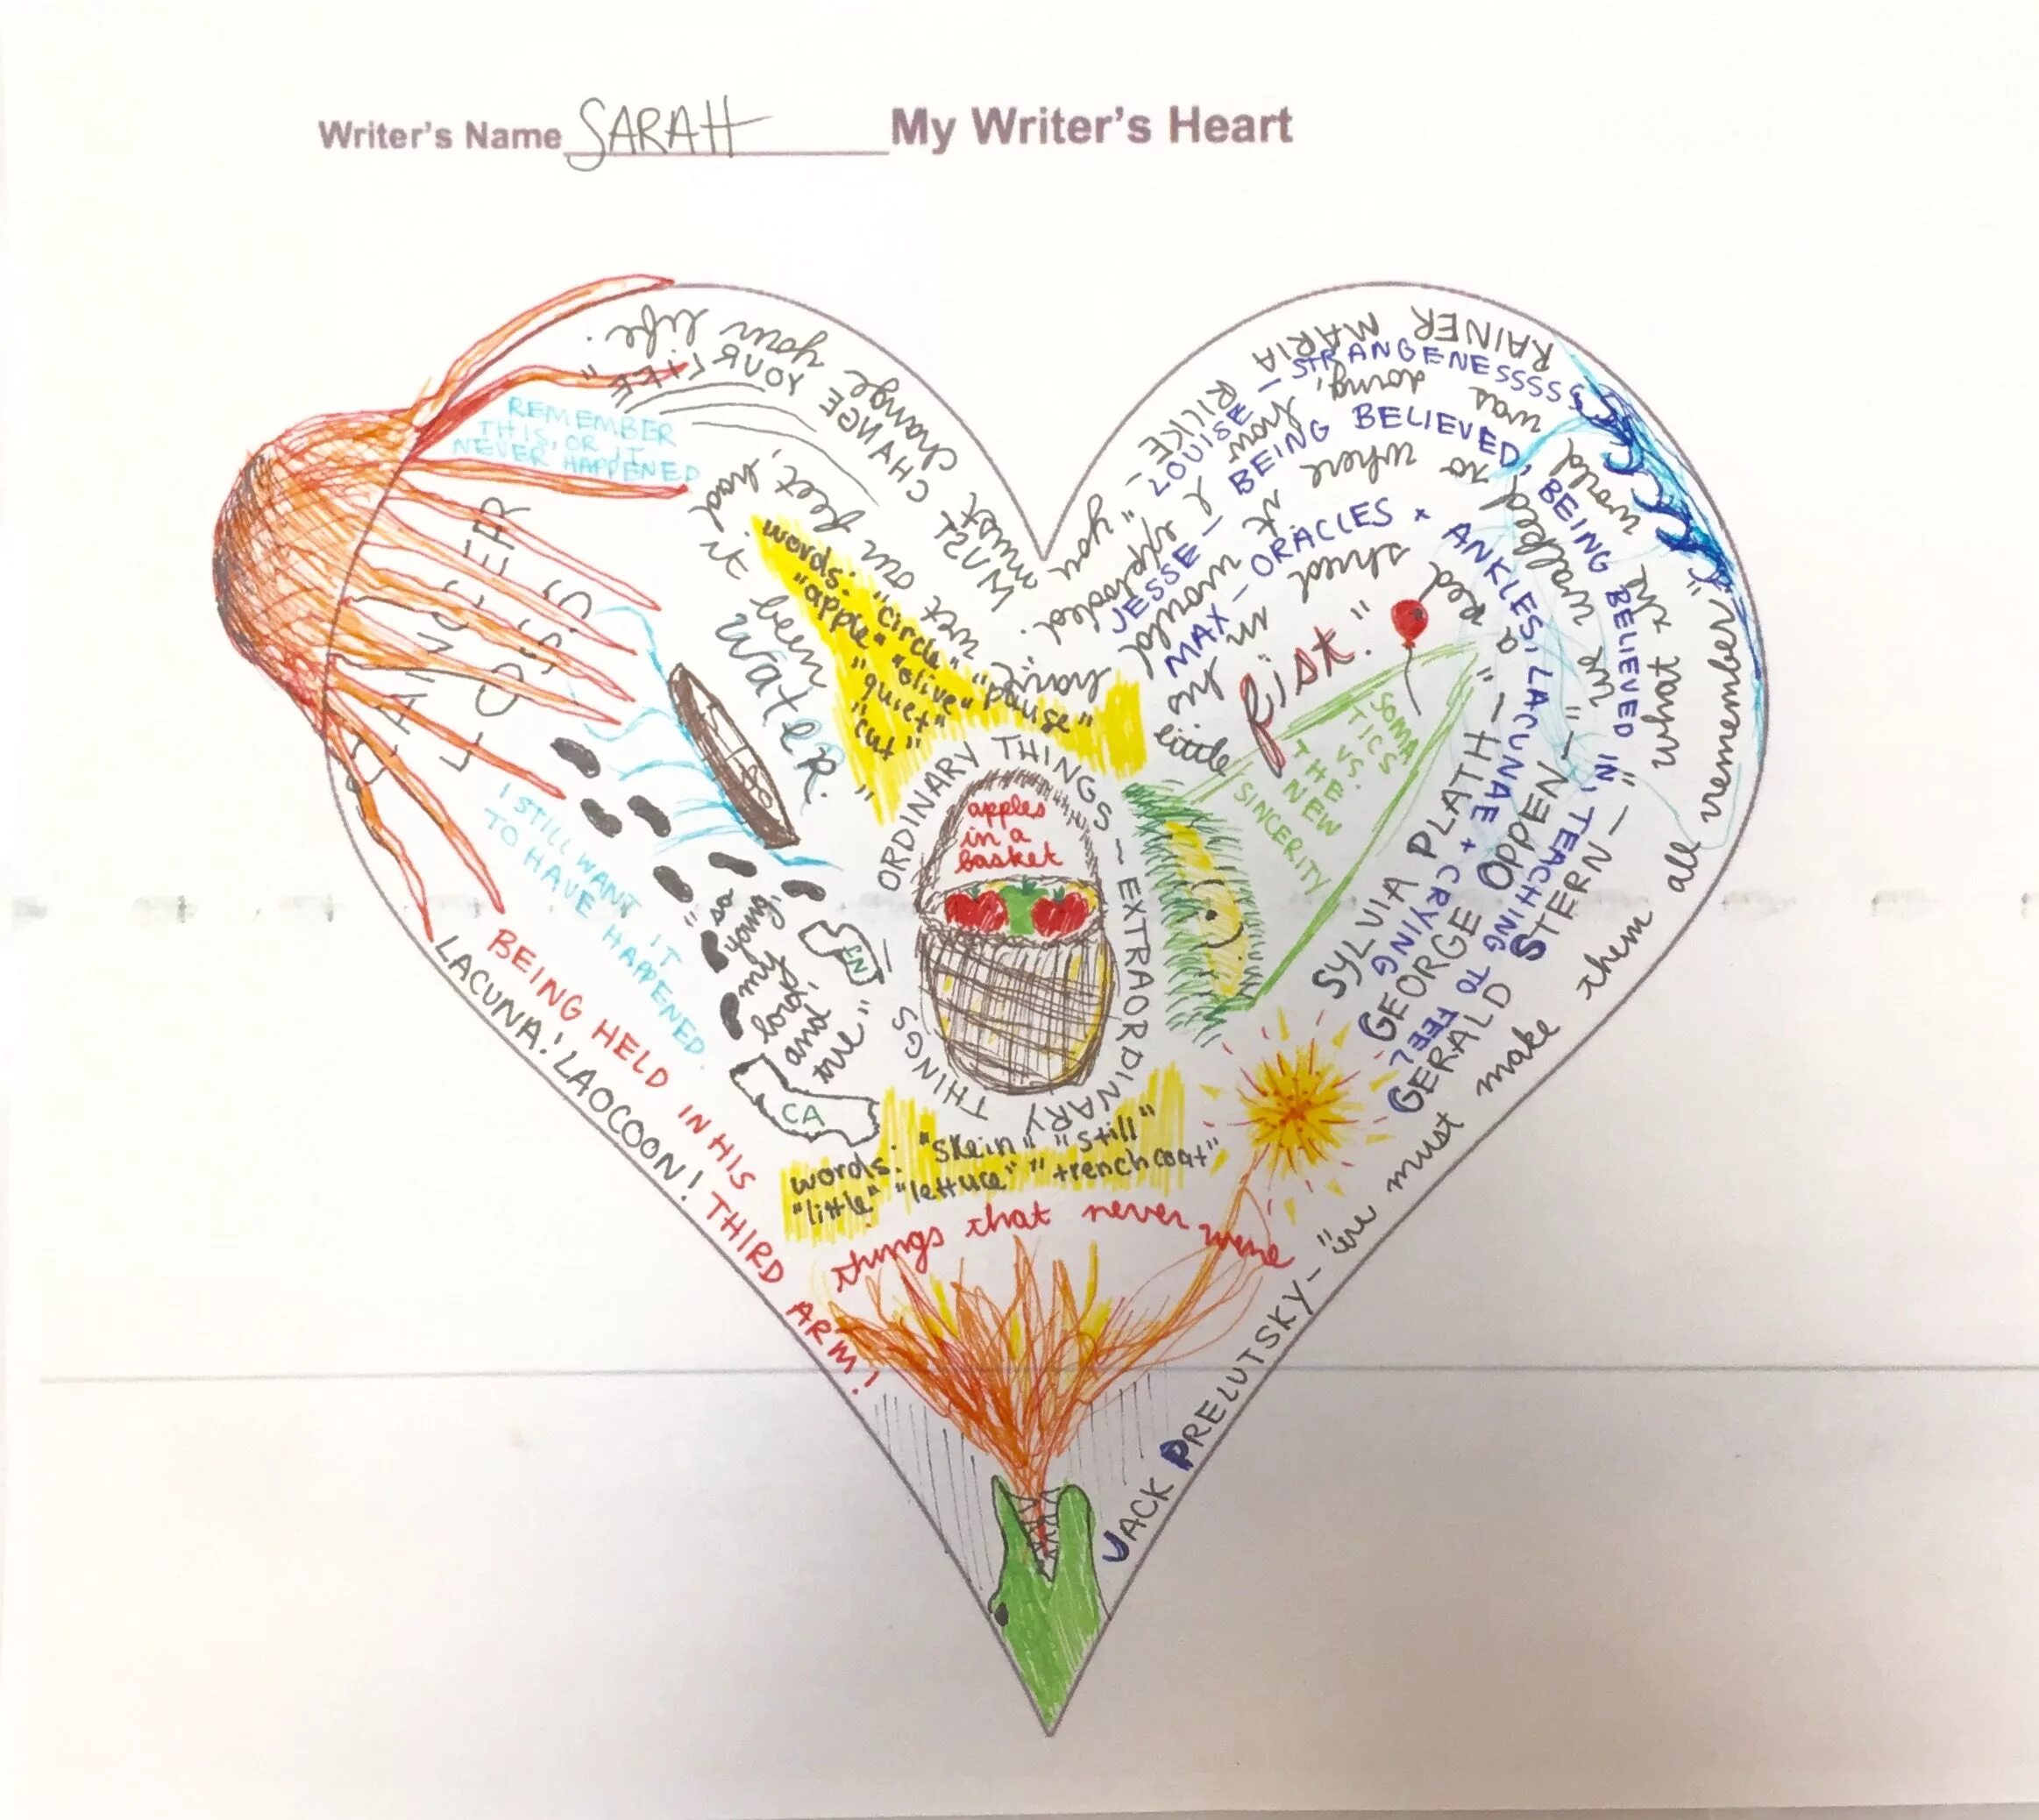 Writer's Name SARAH
My Writer's Heart
RAINER MARIA RILKE - "you must change your life. MUST CHANGE YOUR LIFE"
REMEMBER
THIS, OR IT
NEVER HAPPENED
LOUISE - STRANGENESSSSS
JESSE - BEING BELIEVED, BEING BELIEVED IN, TEACHING TO FEEL
MAX - ORACLES + ANKLES, LACUNAE + CRYING
SYLVIA PLATH - "a red
shred
in
his
little
fist."
GEORGE OPPEN - "we walked
to where
it would
have wet our feet had
it
been
water."
GERALD STERN - "what the
world
was
doing,
I
exploded.
JACK PRELUTSKY - "we must make them all remember"
words: "circle" "pause"
"apple" "olive"
"quiet"
"cut"
CANCER
LOSS
I STILL WANT IT
TO HAVE HAPPENED.
"so
young,
my
lord,
and
true"
EN
CA
ORDINARY THINGS - EXTRAORDINARY THINGS -
apples
in a
basket
SOMA
TICS
VS.
THE
NEW
SINCERITY
BEING HELD IN HIS
THIRD ARM!
LACUNA! LAOCOON!
words: "skein" "still"
"little" "lettuce" "trenchcoat"
things that never were